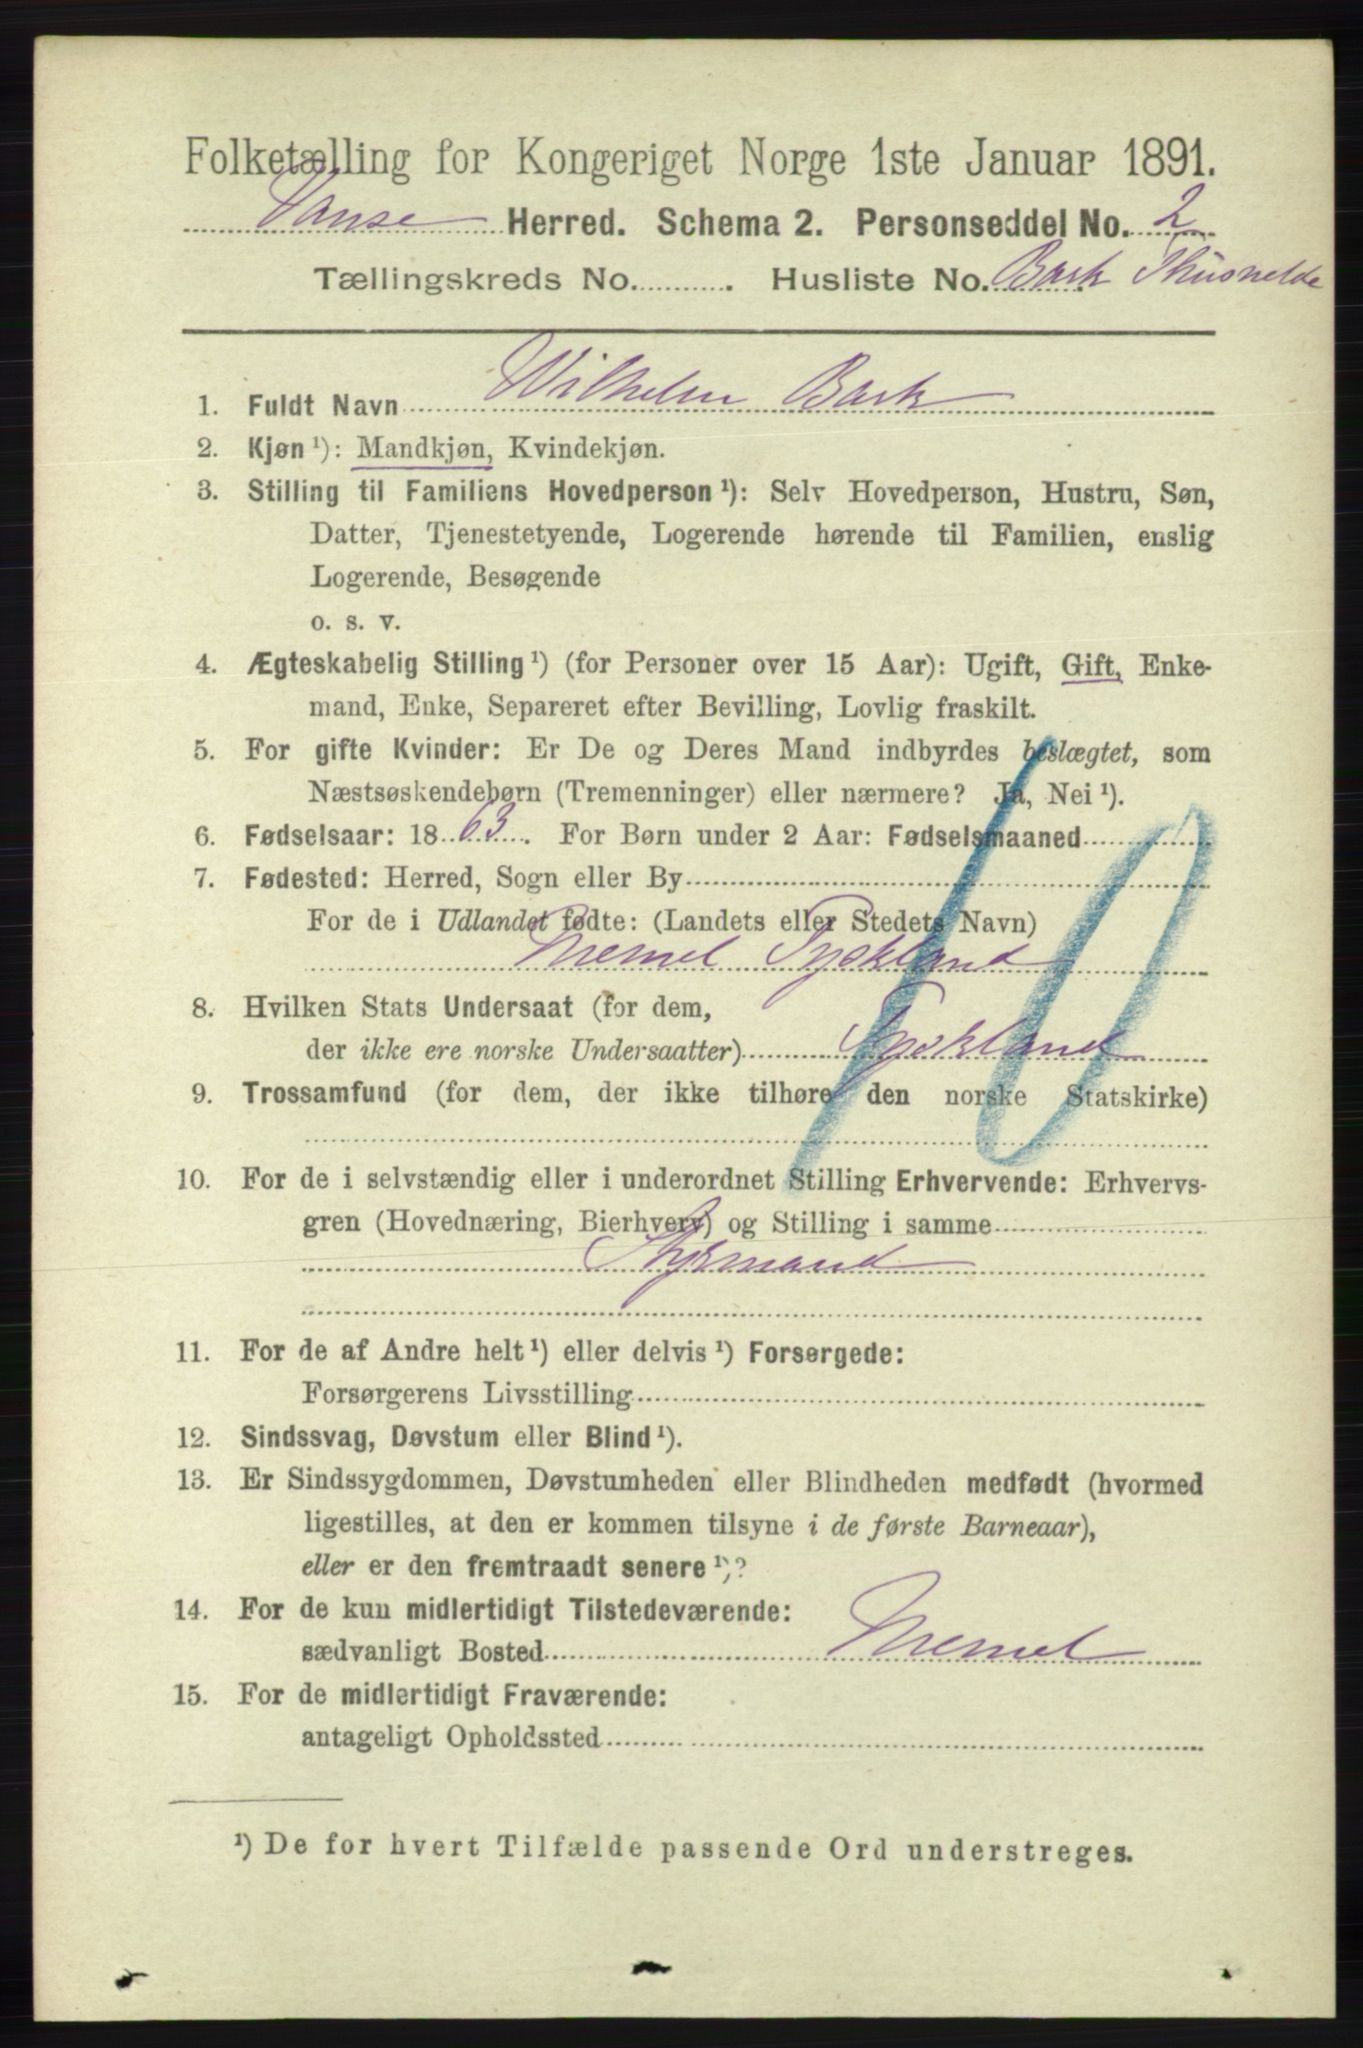 Folketælling for Kongeriget Norge 1ste Januar 1891.
Vanse Herred. Schema 2. Personseddel No. 2
Tællingskreds No. Husliste No. Bark Thusnelde
1. Fuldt Navn Wilhelm Bark
2. Kjøn ¹): Mandkjøn, Kvindekjøn.
3. Stilling til Familiens Hovedperson ¹): Selv Hovedperson, Hustru, Søn,
Datter, Tjenestetyende, Logerende hørende til Familien, enslig
Logerende, Besøgende
o. s. v.
4. Ægteskabelig Stilling ¹) (for Personer over 15 Aar): Ugift, Gift, Enke-
mand, Enke, Separeret efter Bevilling, Lovlig fraskilt.
5. For gifte Kvinder: Er De og Deres Mand indbyrdes beslægtet, som
Næstsøskendebørn (Tremenninger) eller nærmere? Ja, Nei ¹).
6. Fødselsaar: 1863. For Børn under 2 Aar: Fødselsmaaned
7. Fødested: Herred, Sogn eller By
For de i Udlandet fødte: (Landets eller Stedets Navn)
Memel Tyskland
8. Hvilken Stats Undersaat (for dem,
der ikke ere norske Undersaatter) Tyskland
9. Trossamfund (for dem, der ikke tilhøre den norske Statskirke)
10
10. For de i selvstændig eller i underordnet Stilling Erhvervende: Erhvervs-
gren (Hovednæring, Bierhverv) og Stilling i samme
Styrmand
11. For de af Andre helt ¹) eller delvis ¹) Forsørgede:
Forsørgerens Livsstilling
12. Sindssvag, Døvstum eller Blind ¹).
13. Er Sindssygdommen, Døvstumheden eller Blindheden medfødt (hvormed
ligestilles, at den er kommen tilsyne i de første Barneaar),
eller er den fremtraadt senere ¹)?
14. For de kun midlertidigt Tilstedeværende:
sædvanligt Bosted Memel
15. For de midlertidigt Fraværende:
antageligt Opholdssted
¹) De for hvert Tilfælde passende Ord understreges.